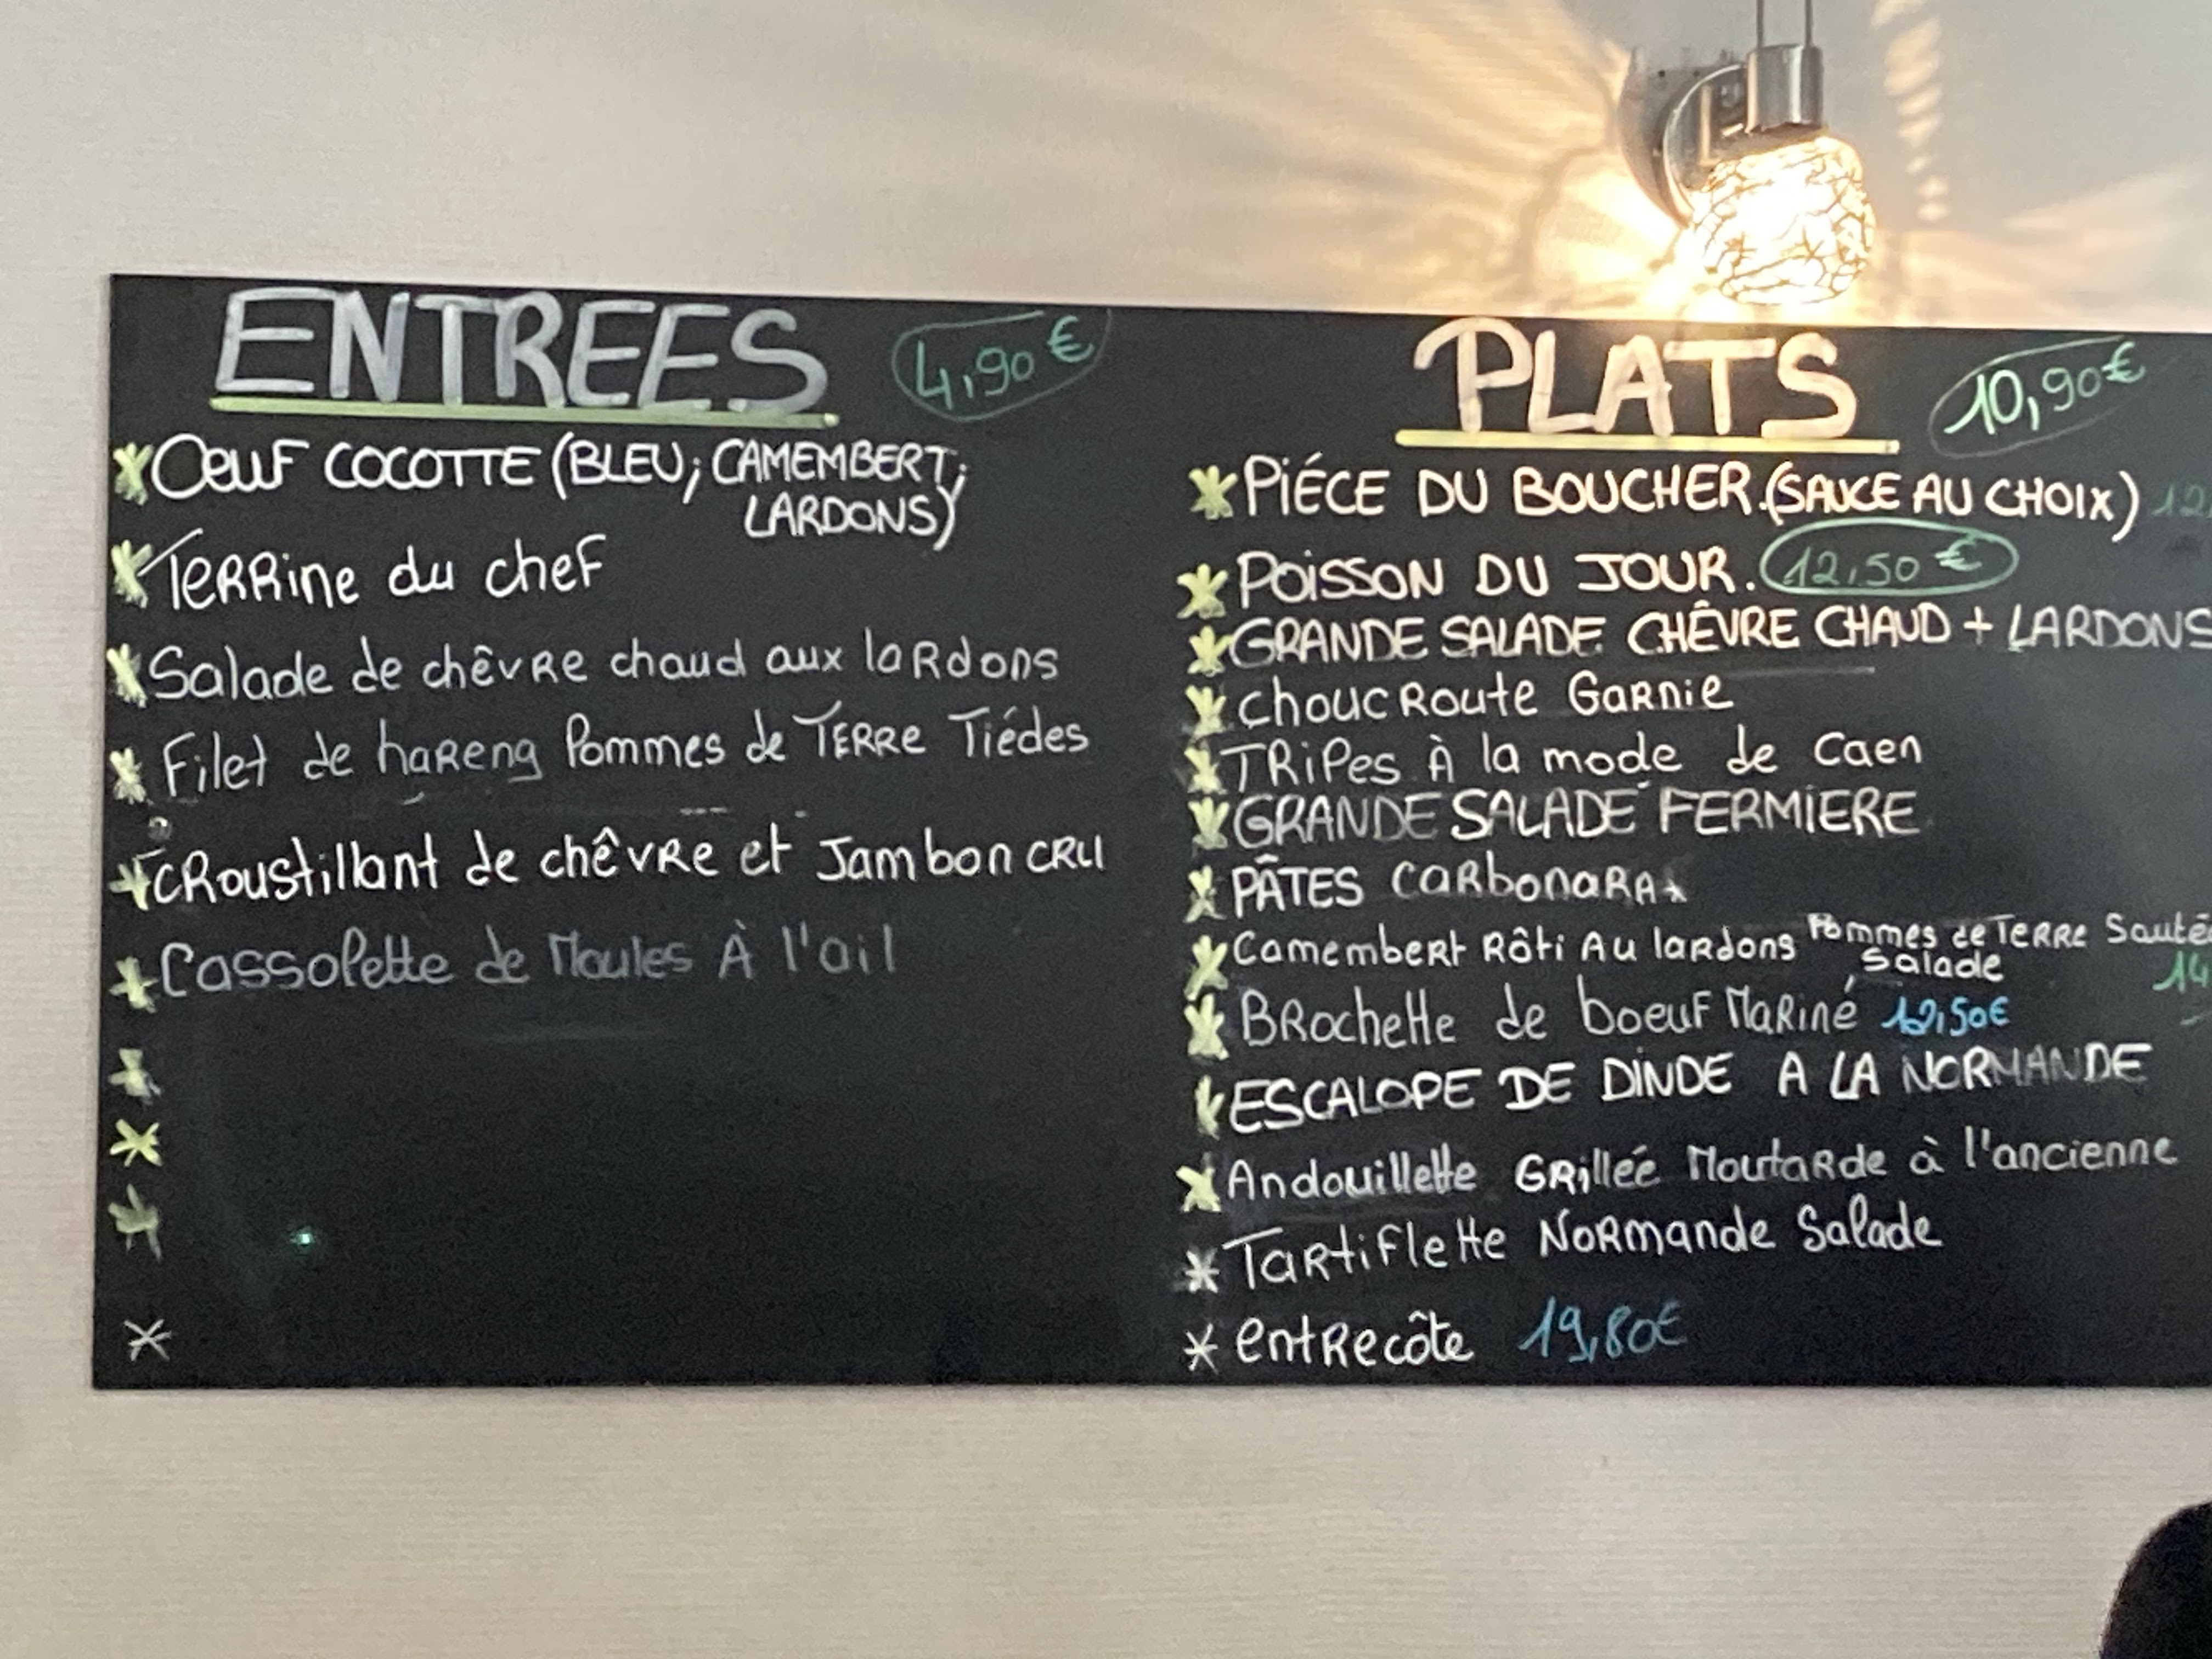 ENTREES 4,90€
* OEUF COCOTTE (BLEU; CAMEMBERT;
LARDONS)
* Terrine du chef
* Salade de chêvre chaud aux lardons
* Filet de hareng Pommes de Terre Tiédes
* croustillant de chêvre et Jambon cru
* Cassolette de Moules À l'ail
*
*
*
*
PLATS 10,90€
* PIÉCE DU BOUCHER.(SAUCE AU CHOIX) 12
* POISSON DU JOUR. 12,50€
* GRANDE SALADE CHÊVRE CHAUD + LARDONS
* choucroute Garnie
* TRIPES À la mode de Caen
* GRANDE SALADE FERMIERE
* PÂTES Carbonara
* Camembert Rôti Au lardons Pommes de Terre
Salade 14
* Brochette de boeuf Mariné 12,50€
* ESCALOPE DE DINDE A LA NORMANDE
* Andouillette Grillée Moutarde à l'ancienne
* Tartiflette Normande Salade
* entrecôte 19,80€